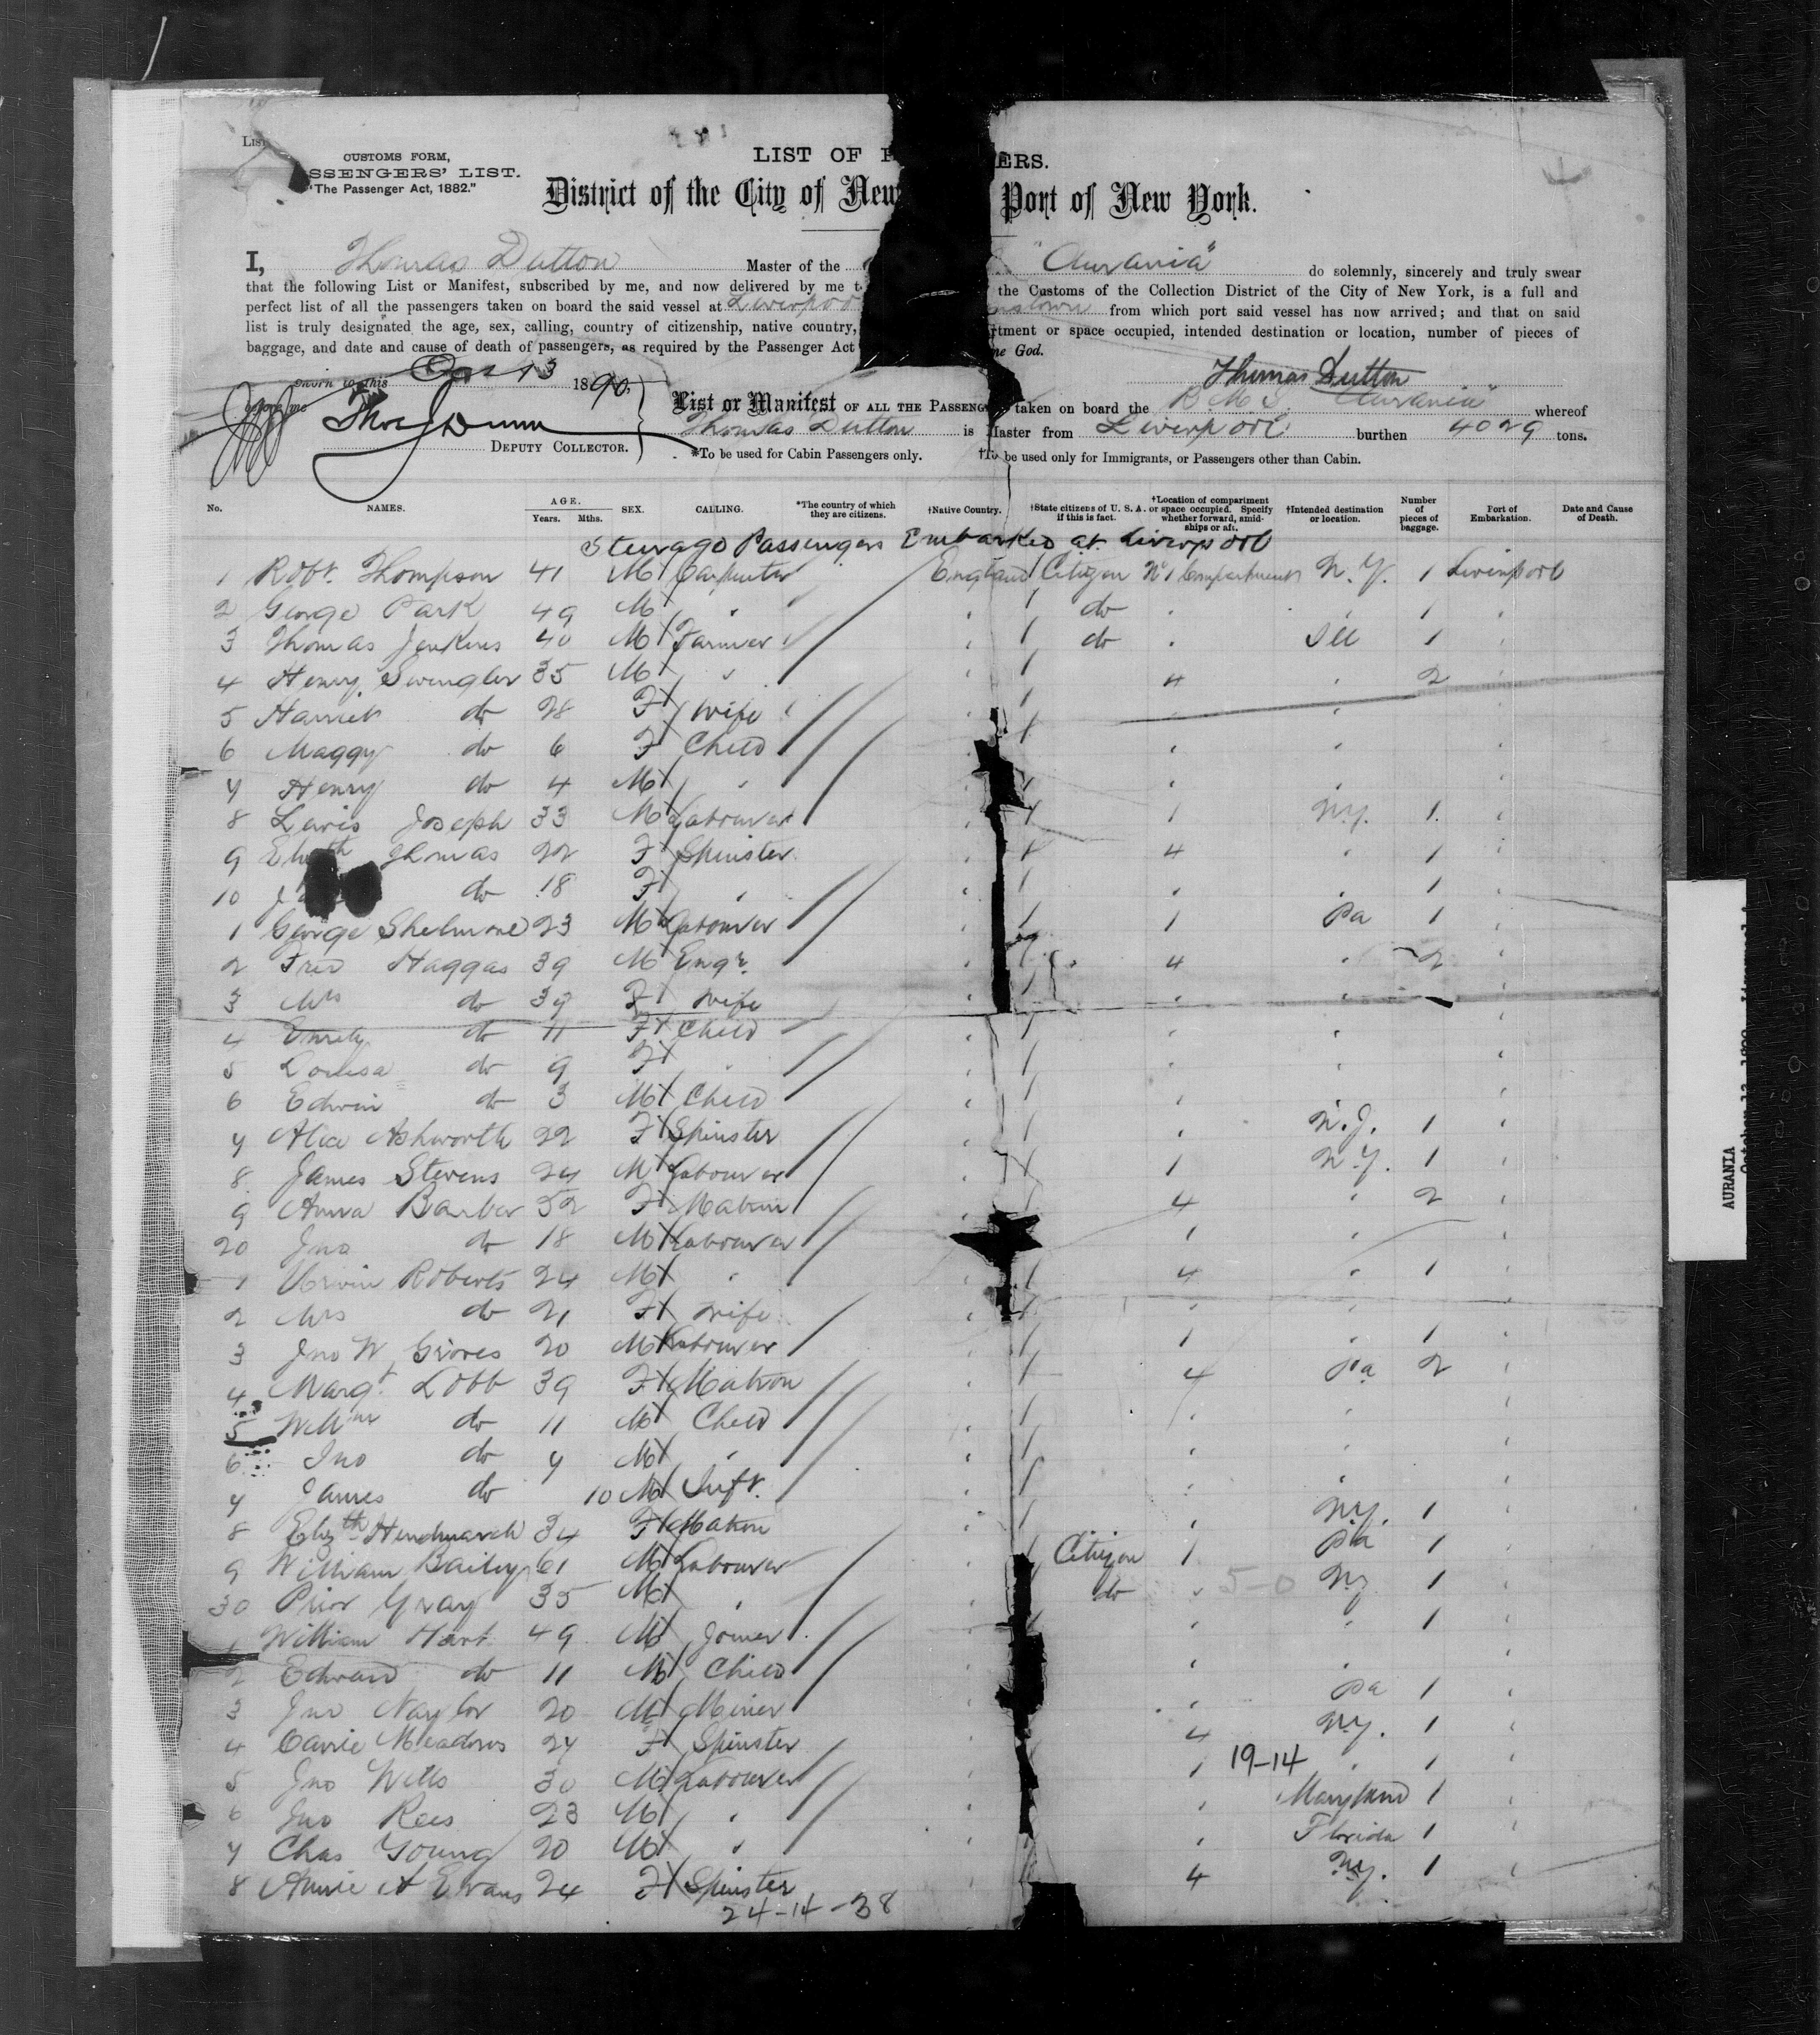 List
CUSTOMS FORM,
SSENGERS' LIST.
"The Passenger Act, 1882."
LIST OF P ERS.
District of the City of New Port of New York.
I, Thomas Dutton Master of the "Aurania" do solemnly, sincerely and truly swear
that the following List or Manifest, subscribed by me, and now delivered by me t the Customs of the Collection District of the City of New York, is a full and
perfect list of all the passengers taken on board the said vessel at Liverpoo nstown from which port said vessel has now arrived; and that on said
list is truly designated the age, sex, calling, country of citizenship, native country, rtment or space occupied, intended destination or location, number of pieces of
baggage, and date and cause of death of passengers, as required by the Passenger Act me God.
Sworn to this Oct 13 1890, Thomas Dutton
before me Thos J Dunn
DEPUTY COLLECTOR.
List or Manifest OF ALL THE PASSENG taken on board the R.M.S. "Aurania" whereof
Thomas Dutton is Master from Liverpool burthen 4029 tons.
*To be used for Cabin Passengers only. †To be used only for Immigrants, or Passengers other than Cabin.
No. NAMES. AGE. Years. Mths. SEX. CALLING. *The country of which they are citizens. †Native Country. †State citizens of U. S. A. if this is fact. †Location of compartment or space occupied. Specify whether forward, amidships or aft. †Intended destination or location. Number of pieces of baggage. Port of Embarkation. Date and Cause of Death.
Steerage Passengers Embarked at Liverpool
1 Robt. Thompson 41 M Carpenter England Citizen No 1 Compartment N.Y. 1 Liverpool
2 George Park 49 M " " do " " 1 "
3 Thomas Jenkins 40 M Farmer " do " Ill 1 "
4 Henry Swingler 35 M " " 4 " 2 "
5 Harriet do 28 F Wife " " " "
6 Maggy do 6 F Child " " " "
7 Henry do 4 M " " " " "
8 Lewis Joseph 33 M Labourer " 1 N.Y. 1 "
9 Elizth Thomas 22 F Spinster " 4 " 1 "
10 J do 18 F " " " " 1 "
1 George Shelmore 23 M Labourer " 1 Pa 1 "
2 Fred Haggas 39 M Engr. " 4 " 2 "
3 Mrs do 39 F Wife " " " "
4 Emily do 11 F Child " " " "
5 Louisa do 9 F " " " " "
6 Edwin do 3 M Child " " "
7 Alice Ashworth 22 F Spinster " " N.J. 1 "
8 James Stevens 24 M Labourer " 1 N.Y. 1 "
9 Anna Barber 52 F Matron " 4 " 2 "
20 Jno do 18 M Labourer " 1 " "
1 Roberts 24 M " " 4 " 1 "
2 Mrs do 21 F Wife " " " "
3 Jno W Groves 20 M Labourer " 1 " 1 "
4 Margt. Lobb 39 F Matron " 4 Pa 2 "
5 Willm do 11 M Child " " " "
6 Jno do 7 M " " " " "
7 James do 10 M Inft. " " " "
8 Elizth Hindmarch 34 F Matron " " N.Y. 1 "
9 William Bailey 61 M Labourer " Citizen 1 Pa 1 "
30 Prior Gray 35 M " " do " 5-0 N.Y. 1 "
1 William Hart 49 M Joiner " " " 1 "
2 Edward do 11 M Child " " " "
3 Jno Naylor 20 M Miner " " Pa 1 "
4 Carrie Meadows 24 F Spinster " 4 N.Y. 1 "
5 Jno Wills 30 M Labourer " 1 19-14 " 1 "
6 Jno Rees 23 M " " " Maryland 1 "
7 Chas Young 20 M " " " Florida 1 "
8 Annie A Evans 24 F Spinster " 4 N.Y. 1 "
24-14-38
AURANIA